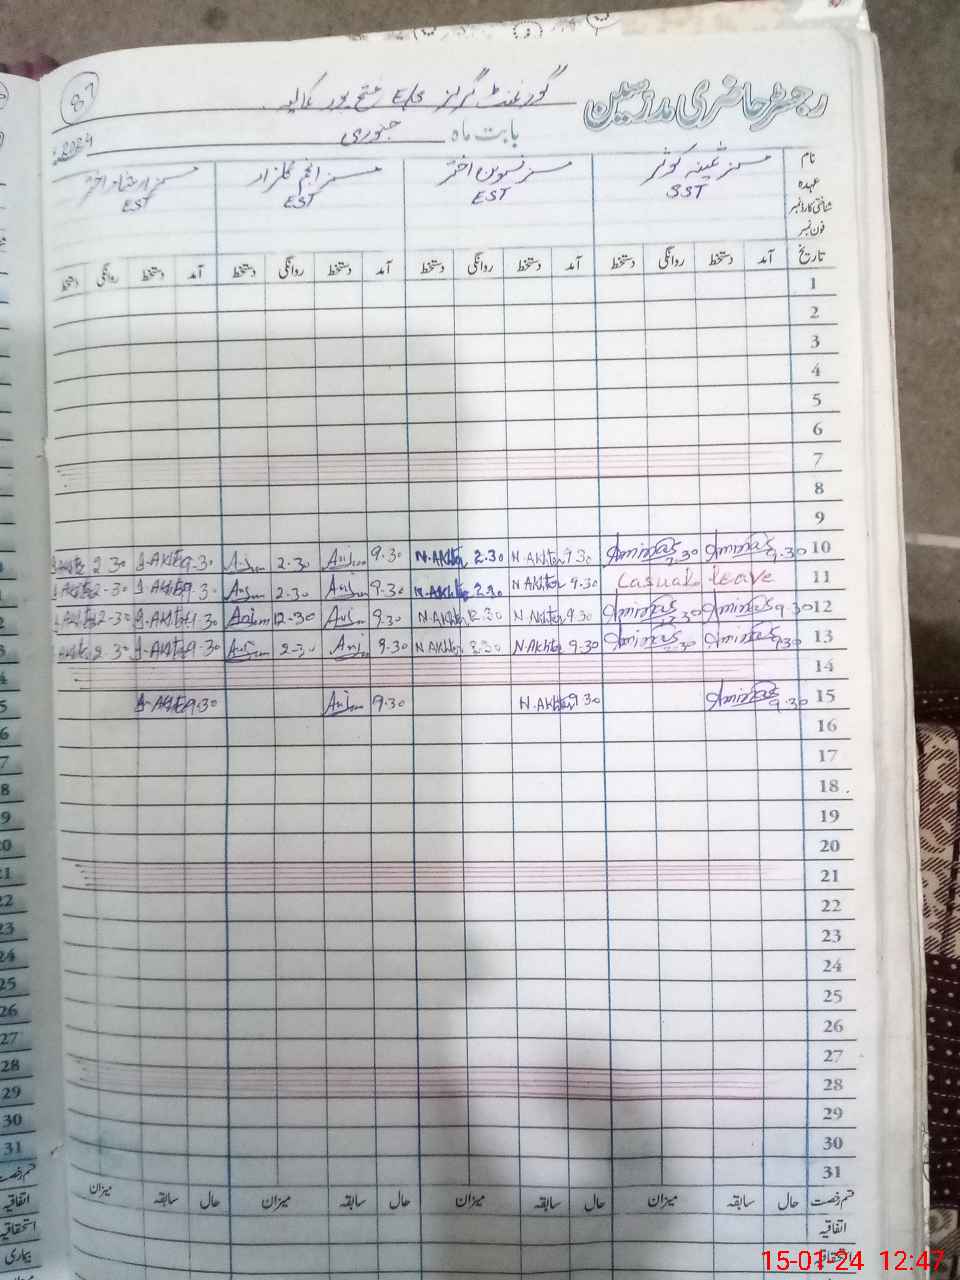 87
رجسٹر حاضری مدرسین گورنمنٹ گرلز E/S فتح پور کمالیہ
بابت ماہ جنوری 2024ء
نام مسز ثمینہ کوثر مسز نسرین اختر مسز انجم گلزار مسز ارشاد اختر
عہدہ SST EST EST EST
شناختی کارڈ نمبر
فون نمبر
تاریخ آمد دستخط روانگی دستخط آمد دستخط روانگی دستخط آمد دستخط روانگی دستخط آمد دستخط روانگی دستخط
1
2
3
4
5
6
7
8
9
10 9.30 Aminas 2.30 Aminas 9.30 N.Akhter 2.30 N.Akhter 9.30 Anjum 2.30 Anjum 9.30 I.Akhter 2.30 I.Akhter
11 Casual leave 9.30 N.Akhter 2.30 N.Akhter 9.30 Anjum 2.30 Anjum 9.30 I.Akhter 2.30 I.Akhter
12 9.30 Aminas 12.30 Aminas 9.30 N.Akhter 12.30 N.Akhter 9.30 Anjum 12.30 Anjum 9.30 I.Akhter 12.30 I.Akhter
13 9.30 Aminas 2.30 Aminas 9.30 N.Akhter 2.30 N.Akhter 9.30 Anjum 2.30 Anjum 9.30 I.Akhter 2.30 I.Akhter
14
15 9.30 Aminas 9.30 N.Akhter 9.30 Anjum 9.30 I.Akhter
16
17
18
19
20
21
22
23
24
25
26
27
28
29
30
31
قسم رخصت حال سابقہ میزان حال سابقہ میزان حال سابقہ میزان حال سابقہ میزان
اتفاقیہ
استحقاقیہ
15-01-24 12:47